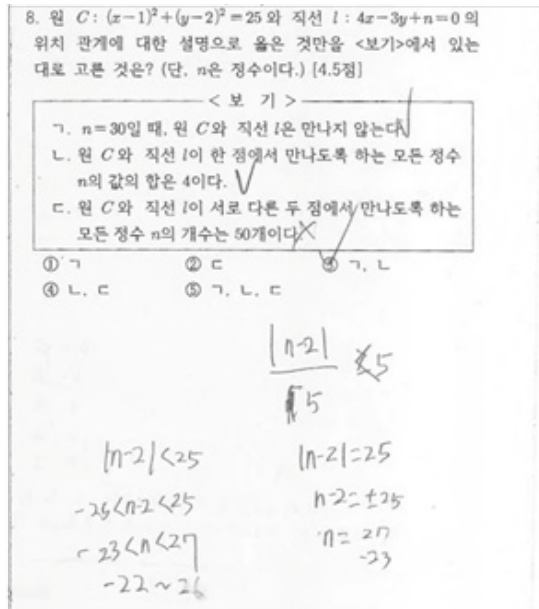 8. 원 C : (x-1)²+(y-2)²=25 와 직선 l : 4x-3y+n=0 의
위치 관계에 대한 설명으로 옳은 것만을 <보기>에서 있는
대로 고른 것은? (단, n은 정수이다.) [4.5점]
< 보 기 >
ㄱ. n=30일 때, 원 C와 직선 l은 만나지 않는다.
ㄴ. 원 C와 직선 l이 한 점에서 만나도록 하는 모든 정수
n의 값의 합은 4이다.
ㄷ. 원 C와 직선 l이 서로 다른 두 점에서 만나도록 하는
모든 정수 n의 개수는 50개이다.
① ㄱ ② ㄷ ③ ㄱ, ㄴ
④ ㄴ, ㄷ ⑤ ㄱ, ㄴ, ㄷ
|n-2|
5 5
|n-2|<25 |n-2|=25
-25<n-2<25 n-2=±25
-23<n<27 n= 27
-23
-22~26